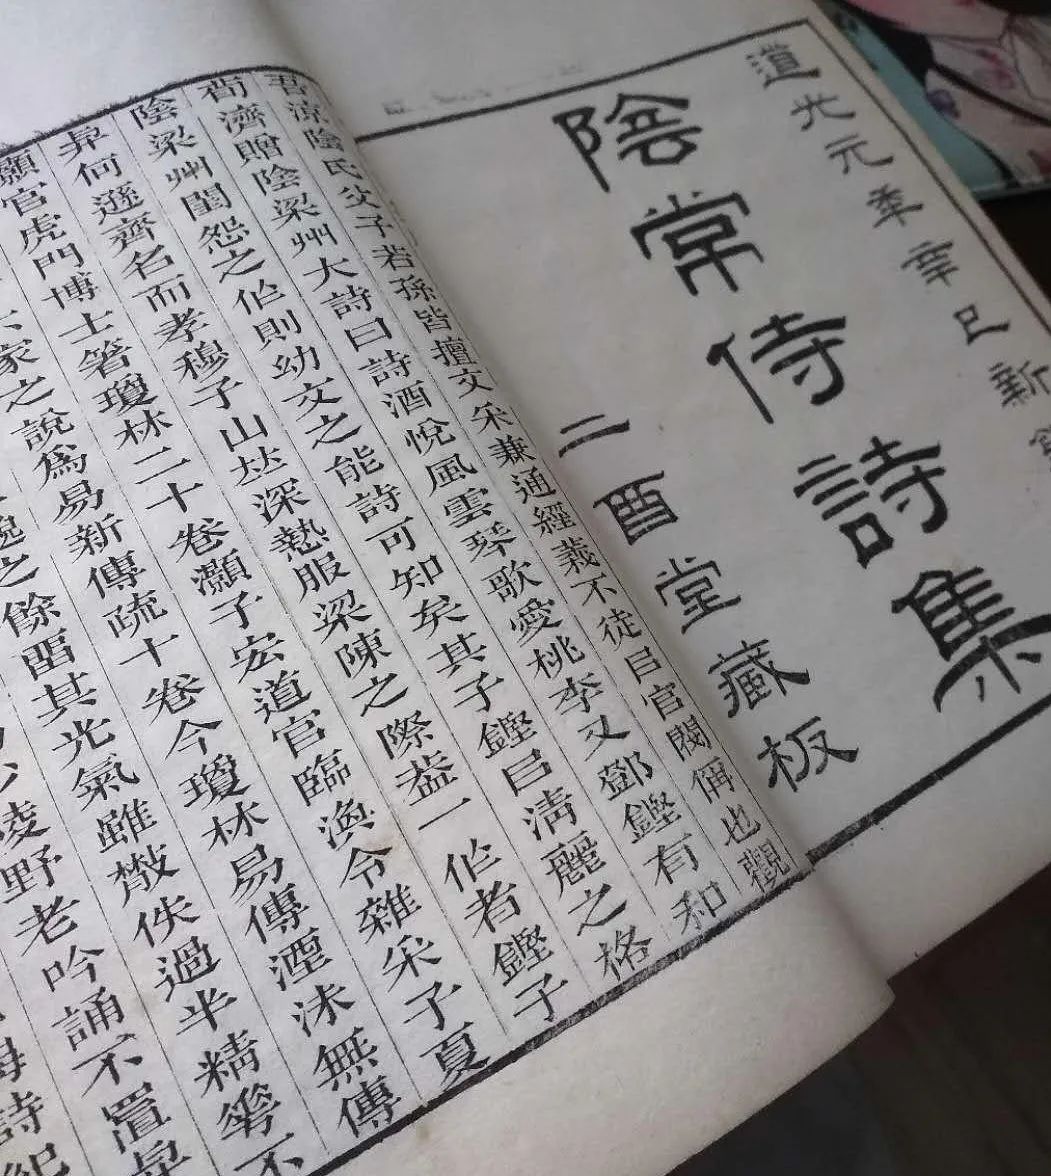 道光元秊辛巳新
陰常侍詩集
二酉堂藏板
吾涼陰氏父子若孫皆擅文采兼通經義不徒㠯官閥偁也觀
荀濟贈陰梁州大詩曰詩酒悅風雲琴歌愛桃李又鄧鏗有和
陰梁州閨怨之作則幼文之能詩可知矣其子鏗㠯清麗之格
㫐何遜齊名而孝穆子山㘸深熱服梁陳之際盋一作者鏗子
顥官虎門博士箸瓊林二十卷灝子宏道官臨渙令雜采子夏
家之說爲易新傳疏十卷今瓊林易傳湮沬無傳
之餘畱其光氣雖㪚佚過半精華不
陵野老吟誦不置
詩紀